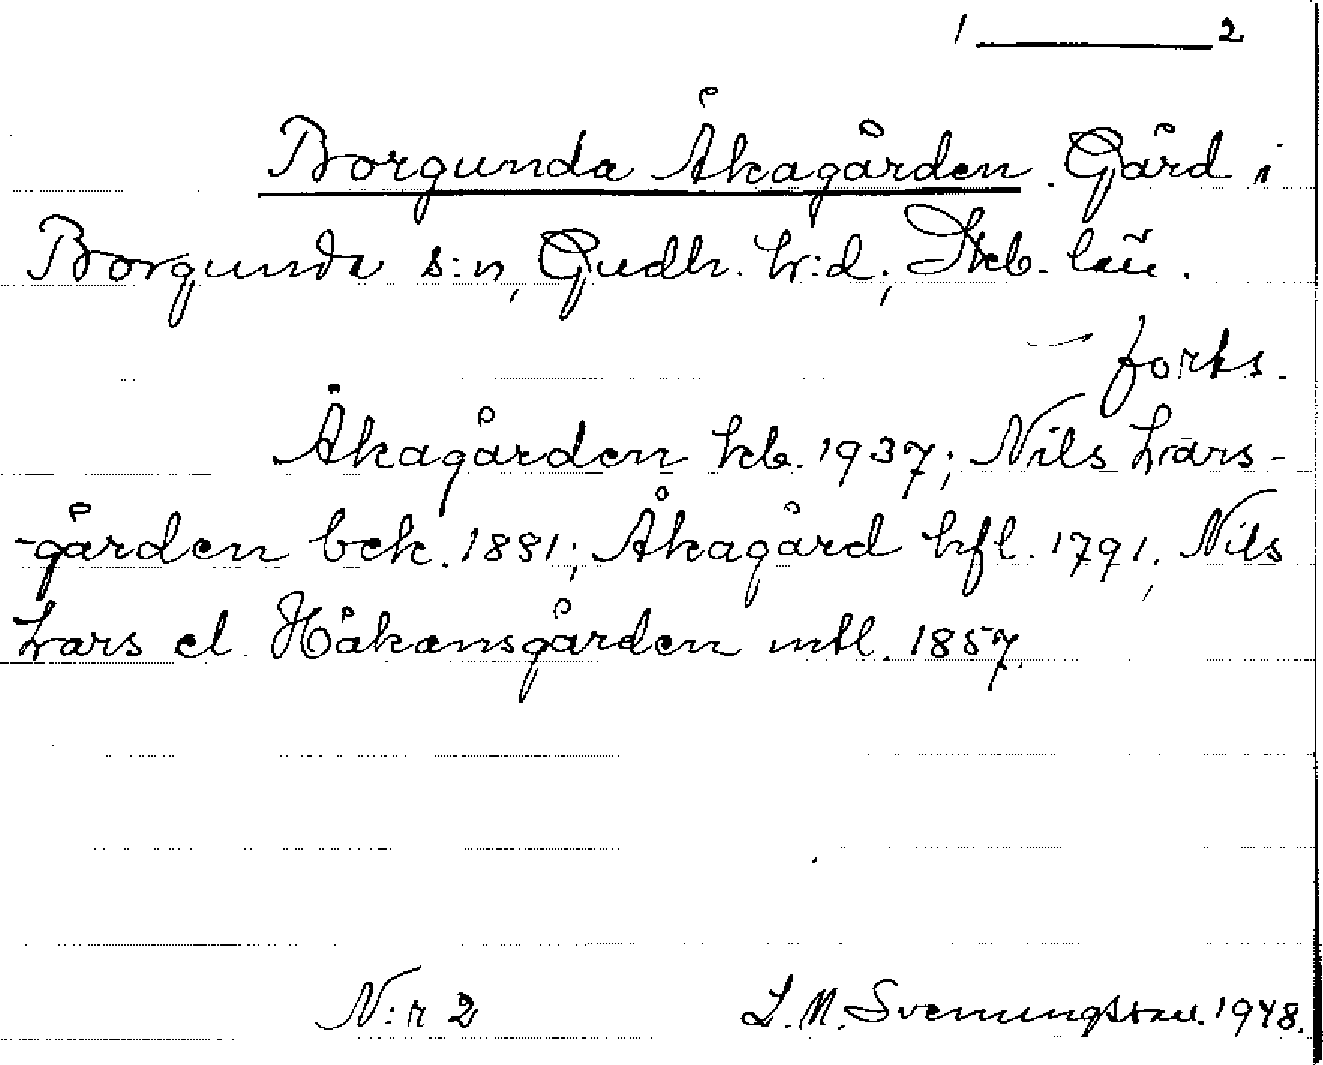 1 ____ 2
Borgunda Åkagården. Gård i
Borgunda s:n, Gudh. h:d, Skb. län.
forts.
Åkagården kb. 1937; Nils Lars-
-gården bek. 1881; Åkagård hfl. 1791; Nils
Lars el. Håkansgården mtl. 1857.
N:r 2 L. M. Svenungsson. 1948.